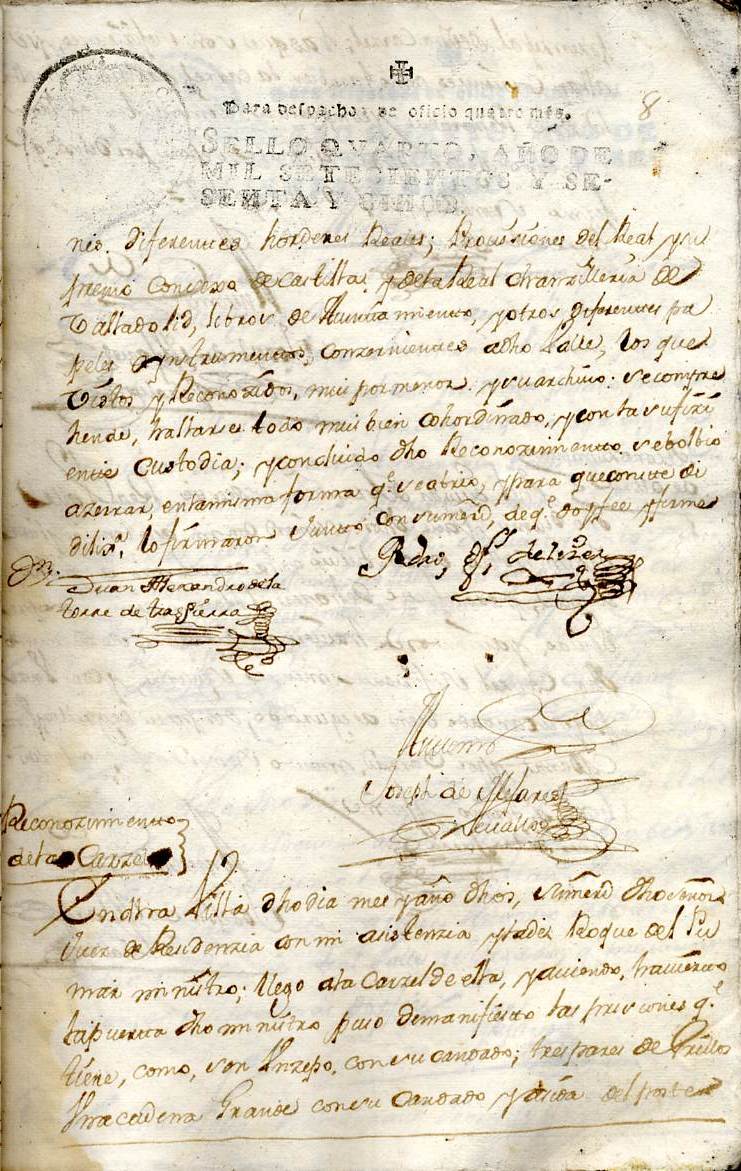 8
Para despachos de oficio quatro mrs.
SELLO QVARTO, AÑO DE
MIL SETECIENTOS Y SE-
SENTA Y CINCO.
nes, diferentes hordenes Reales; Provissiones del Real y su
premo Conzexo de Castilla, y de la Real Chanzilleria de
Valladolid, libros de Aiuntamiento, y otros diferentes pa
peles Ynstrumentos, conzernientes a dho Valle, los que
Vistos y Reconozidos, mui por menor y su archivo; se compre
hende, hallarse todo mui bien cohordinado, y con la sufizi
ente Custodia; y concluido dho Reconozimiento se bolbio
a zerrar, en la misma forma q.e se abrio, y para que conste di
lixa, lo firmaron Junto con su merd, de q.e doy fee y firme
Juan Fernandro de la
torre de trassierra
Pedro
Antemi
Joseph de
Zevallos
Reconozimiento
de la Carzel
En dha Villa dho dia mes y año dhos, su merd dho señor
Juez de Residenzia con mi asistenzia y la de Roque del Pu
mar ministro; llego a la Carzel de ella, y aviendo, havierto
la puerta dho ministro puso de manifiesto las prisiones q.e
tiene, como, son Un zepo, con su candado; tres pares de Grillos
Una cadena Grande con su Candado y asida del poste